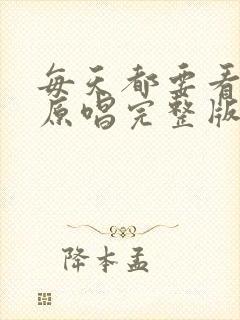 每天都要看
原唱完整版
降本孟